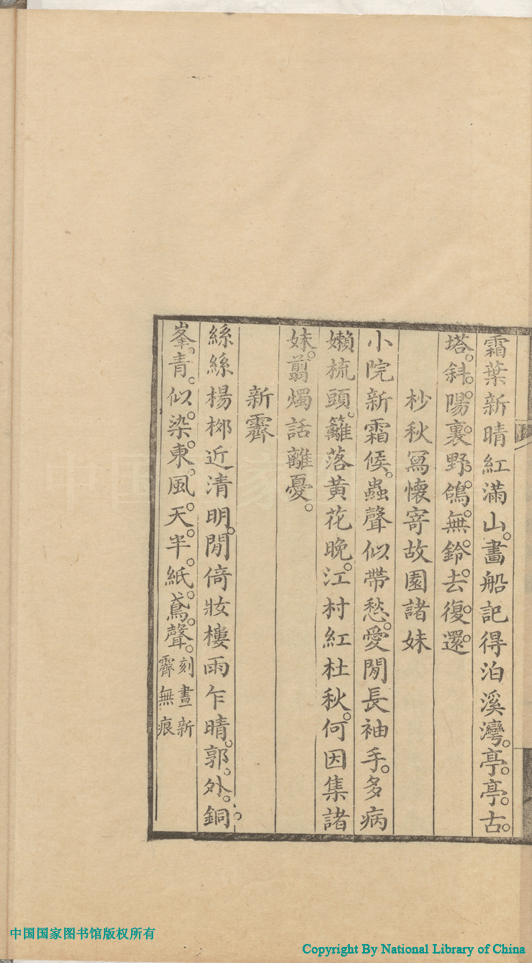 霜葉新晴紅滿山。畫船記得泊溪灣。亭。亭。古。
塔。斜。陽。裏。野。鴿。無。鈴。去。復。還。
杪秋寫懷寄故園諸妹
小院新霜候。蟲聲似帶愁。愛閒長袖手。多病
嬾梳頭。籬落黃花晚。江村紅杜秋。何因集諸
妹。翦燭話離憂。
新霽
絲絲楊桺近清明。閒倚妝樓雨乍晴。郭。外。銅。
峯。青。似。染。東。風。天。半。紙。鳶。聲。刻畫新
霽無痕
中国国家图书馆版权所有
Copyright By National Library of China